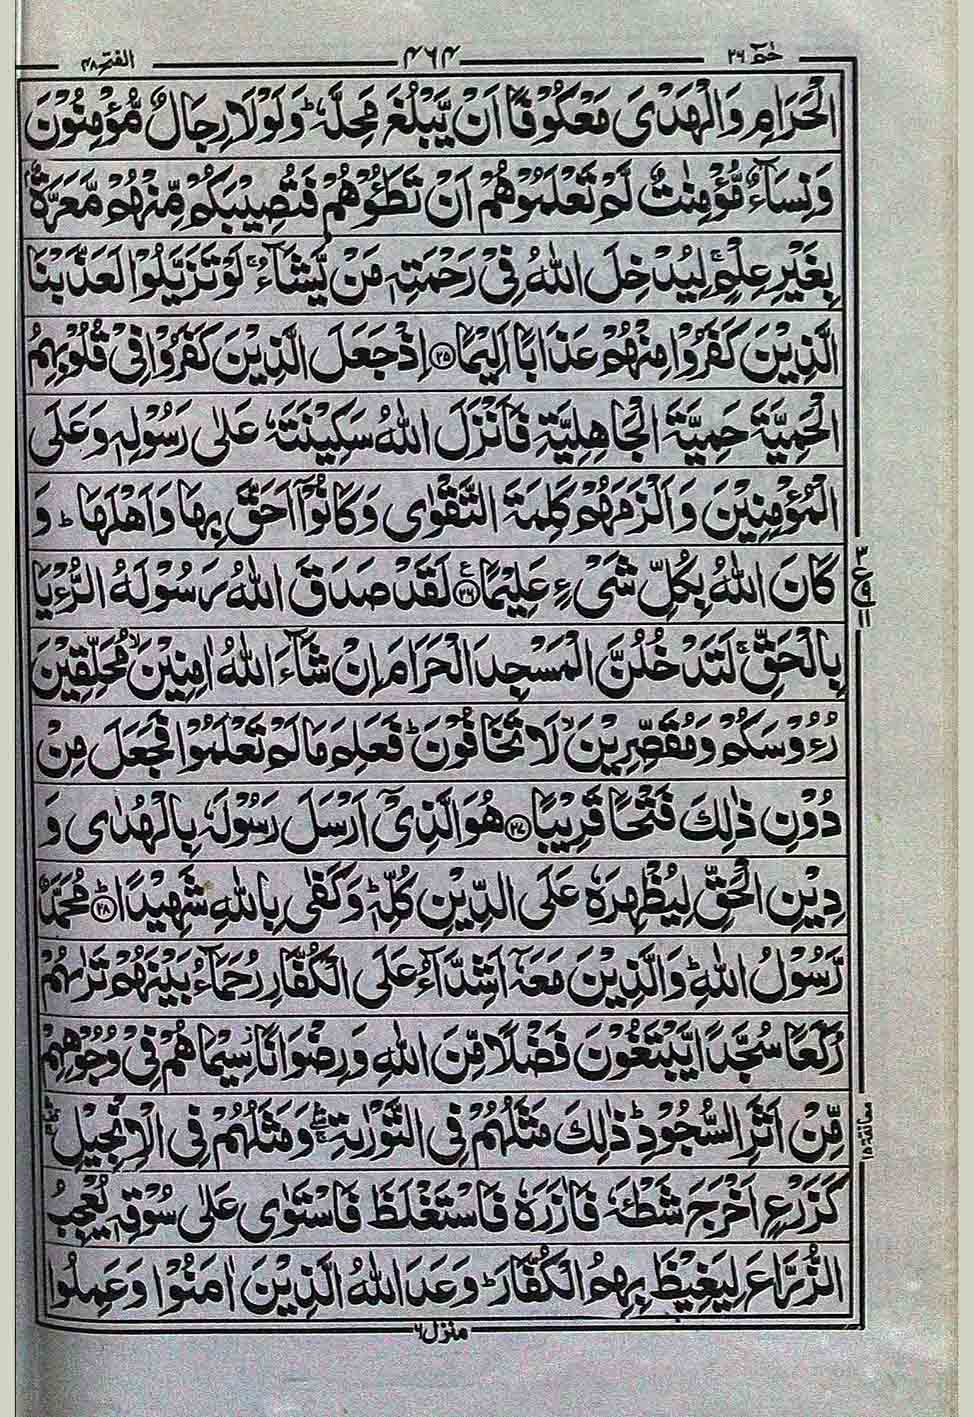 الفتح ۴۸ ۴۶۴ حٰمٓ ۲۶
الْحَرَامِ وَالْهَدْیَ مَعْكُوْفًا اَنْ یَّبْلُغَ مَحِلَّهٗ ؕ وَلَوْلَا رِجَالٌ مُّؤْمِنُوْنَ
وَنِسَآءٌ مُّؤْمِنٰتٌ لَّمْ تَعْلَمُوْهُمْ اَنْ تَطَـُٔوْهُمْ فَتُصِیْبَكُمْ مِّنْهُمْ مَّعَرَّةٌۢ
بِغَیْرِ عِلْمٍ ۚ لِیُدْخِلَ اللّٰهُ فِیْ رَحْمَتِهٖ مَنْ یَّشَآءُ ۚ لَوْ تَزَیَّلُوْا لَعَذَّبْنَا
الَّذِیْنَ كَفَرُوْا مِنْهُمْ عَذَابًا اَلِیْمًا ﴿۲۵﴾ اِذْ جَعَلَ الَّذِیْنَ كَفَرُوْا فِیْ قُلُوْبِهِمُ
الْحَمِیَّةَ حَمِیَّةَ الْجَاهِلِیَّةِ فَاَنْزَلَ اللّٰهُ سَكِیْنَتَهٗ عَلٰی رَسُوْلِهٖ وَعَلَی
الْمُؤْمِنِیْنَ وَاَلْزَمَهُمْ كَلِمَةَ التَّقْوٰی وَكَانُوْۤا اَحَقَّ بِهَا وَاَهْلَهَا ؕ وَ
كَانَ اللّٰهُ بِكُلِّ شَیْءٍ عَلِیْمًا ﴿۲۶﴾ ع لَقَدْ صَدَقَ اللّٰهُ رَسُوْلَهُ الرُّءْیَا
بِالْحَقِّ ۚ لَتَدْخُلُنَّ الْمَسْجِدَ الْحَرَامَ اِنْ شَآءَ اللّٰهُ اٰمِنِیْنَ ۙ مُحَلِّقِیْنَ
رُءُوْسَكُمْ وَمُقَصِّرِیْنَ ۙ لَا تَخَافُوْنَ ؕ فَعَلِمَ مَا لَمْ تَعْلَمُوْا فَجَعَلَ مِنْ
دُوْنِ ذٰلِكَ فَتْحًا قَرِیْبًا ﴿۲۷﴾ هُوَ الَّذِیْۤ اَرْسَلَ رَسُوْلَهٗ بِالْهُدٰی وَ
دِیْنِ الْحَقِّ لِیُظْهِرَهٗ عَلَی الدِّیْنِ كُلِّهٖ ؕ وَكَفٰی بِاللّٰهِ شَهِیْدًا ﴿۲۸﴾ ؕ مُحَمَّدٌ
رَّسُوْلُ اللّٰهِ ؕ وَالَّذِیْنَ مَعَهٗۤ اَشِدَّآءُ عَلَی الْكُفَّارِ رُحَمَآءُ بَیْنَهُمْ تَرٰىهُمْ
رُكَّعًا سُجَّدًا یَّبْتَغُوْنَ فَضْلًا مِّنَ اللّٰهِ وَرِضْوَانًا ؗ سِیْمَاهُمْ فِیْ وُجُوْهِهِمْ
مِّنْ اَثَرِ السُّجُوْدِ ؕ ذٰلِكَ مَثَلُهُمْ فِی التَّوْرٰىةِ ۛۖۚ وَمَثَلُهُمْ فِی الْاِنْجِیْلِ
كَزَرْعٍ اَخْرَجَ شَطْـَٔهٗ فَاٰزَرَهٗ فَاسْتَغْلَظَ فَاسْتَوٰی عَلٰی سُوْقِهٖ یُعْجِبُ
الزُّرَّاعَ لِیَغِیْظَ بِهِمُ الْكُفَّارَ ؕ وَعَدَ اللّٰهُ الَّذِیْنَ اٰمَنُوْا وَعَمِلُوا
منزل ۶